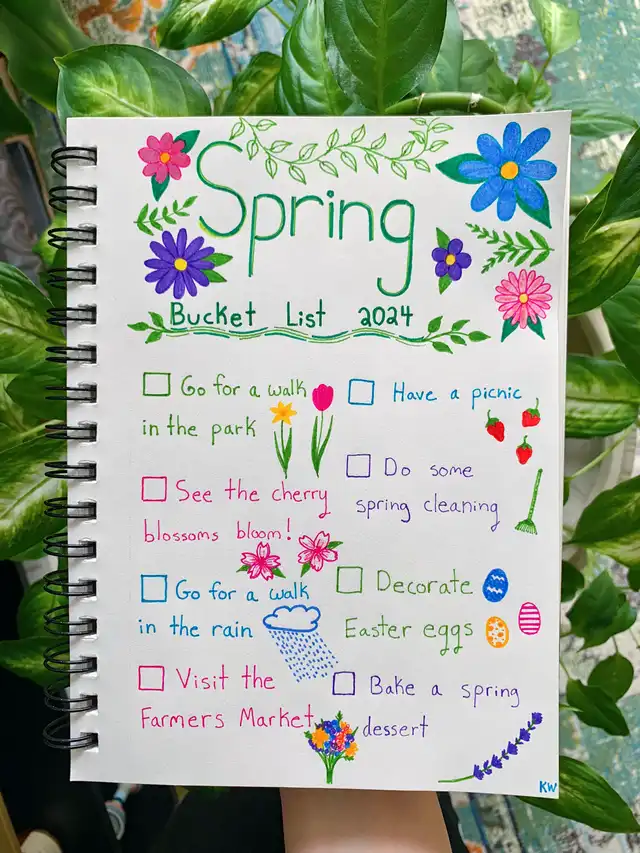 Spring
Bucket List 2024
Go for a walk
in the park
See the cherry
blossoms bloom!
Go for a walk
in the rain
Visit the
Farmers Market
Have a picnic
Do some
spring cleaning
Decorate
Easter eggs
Bake a spring
dessert
KW